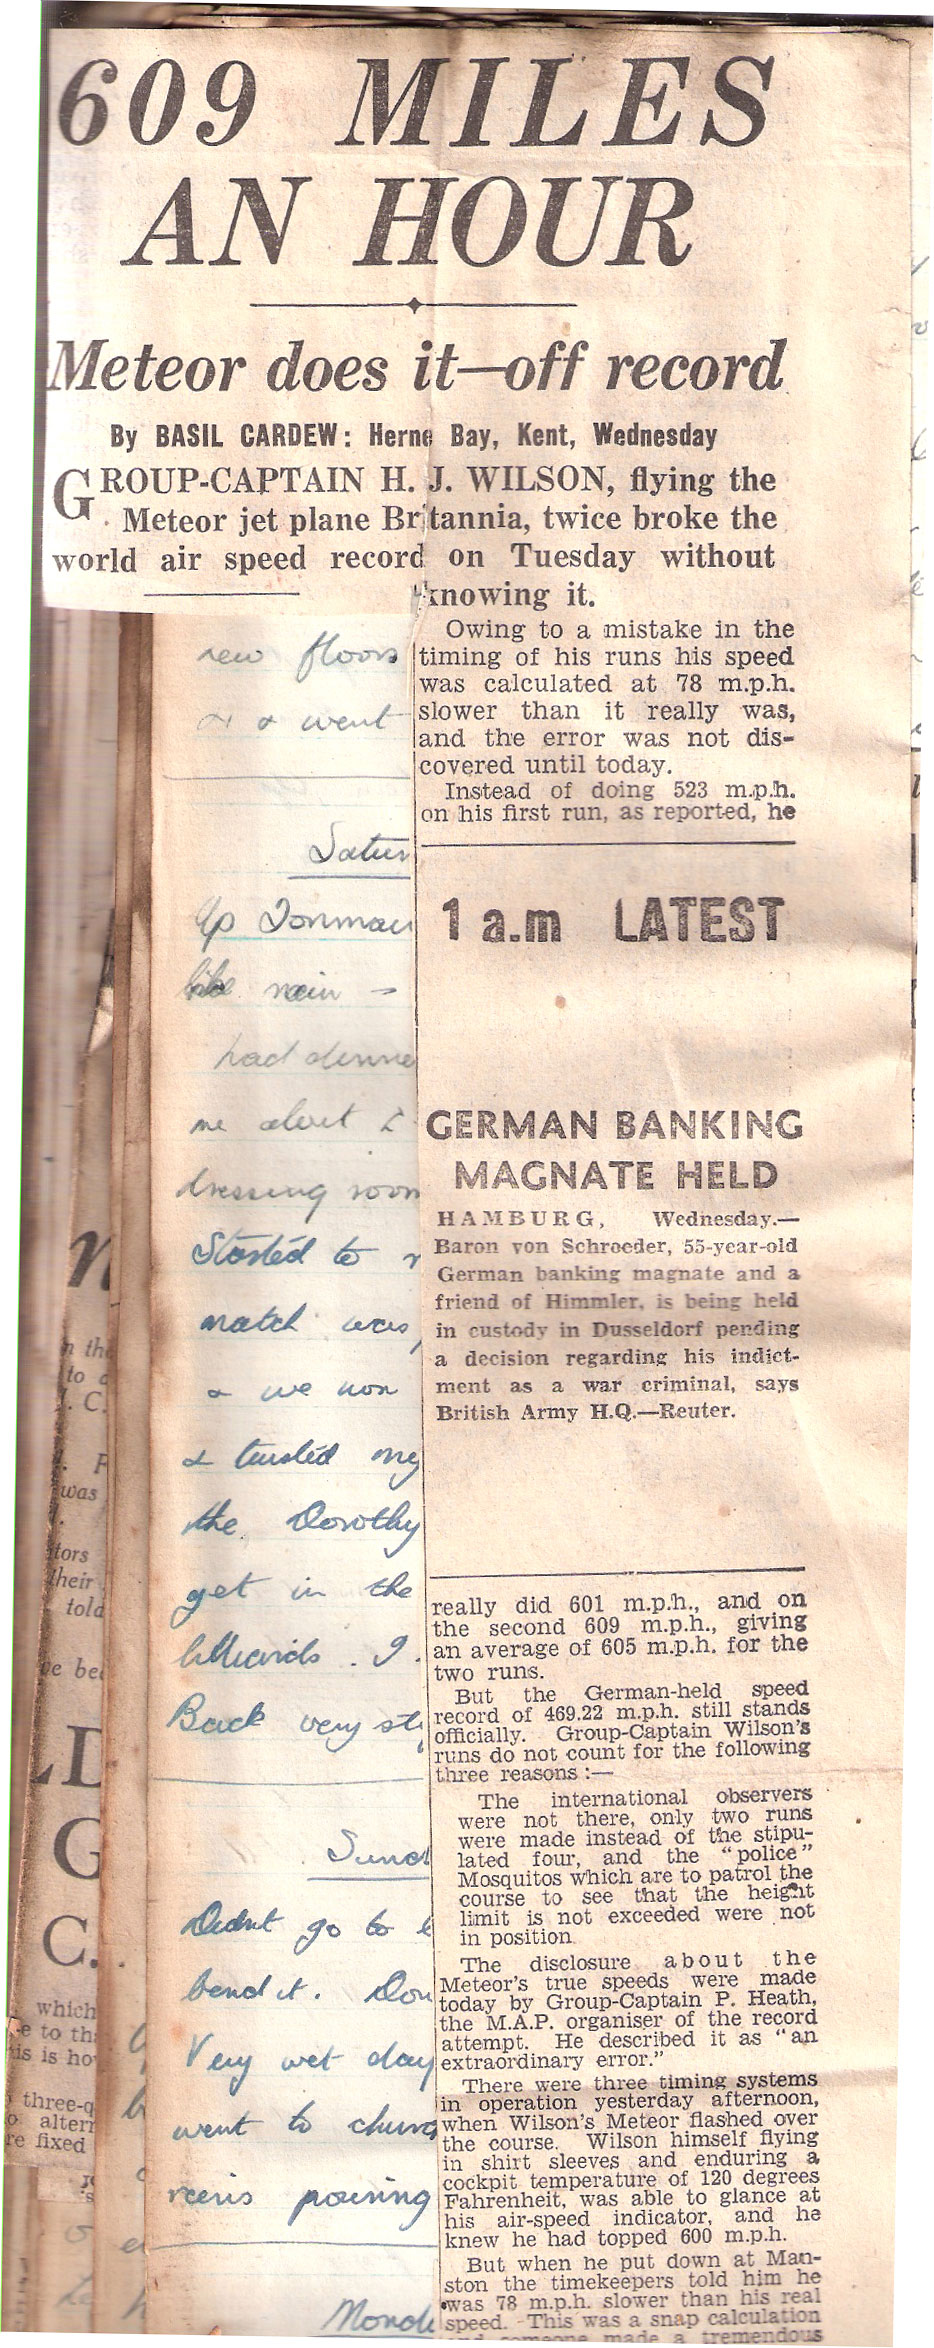 609 MILES
AN HOUR
Meteor does it—off record
By BASIL CARDEW: Herne Bay, Kent, Wednesday
GROUP-CAPTAIN H. J. WILSON, flying the
Meteor jet plane Britannia, twice broke the
world air speed record on Tuesday without
knowing it.
Owing to a mistake in the
timing of his runs his speed
was calculated at 78 m.p.h.
slower than it really was,
and the error was not dis-
covered until today.
Instead of doing 523 m.p.h.
on his first run, as reported, he
1 a.m LATEST
GERMAN BANKING
MAGNATE HELD
HAMBURG, Wednesday.—
Baron von Schroeder, 55-year-old
German banking magnate and a
friend of Himmler, is being held
in custody in Dusseldorf pending
a decision regarding his indict-
ment as a war criminal, says
British Army H.Q.—Reuter.
really did 601 m.p.h., and on
the second 609 m.p.h., giving
an average of 605 m.p.h. for the
two runs.
But the German-held speed
record of 469.22 m.p.h. still stands
officially. Group-Captain Wilson's
runs do not count for the following
three reasons :—
The international observers
were not there, only two runs
were made instead of the stipu-
lated four, and the "police"
Mosquitos which are to patrol the
course to see that the height
limit is not exceeded were not
in position
The disclosure about the
Meteor's true speeds were made
today by Group-Captain P. Heath,
the M.A.P. organiser of the record
attempt. He described it as "an
extraordinary error."
There were three timing systems
in operation yesterday afternoon,
when Wilson's Meteor flashed over
the course. Wilson himself flying
in shirt sleeves and enduring a
cockpit temperature of 120 degrees
Fahrenheit, was able to glance at
his air-speed indicator, and he
knew he had topped 600 m.p.h.
But when he put down at Man-
ston the timekeepers told him he
was 78 m.p.h. slower than his real
speed. This was a snap calculation
and someone made a tremendous
new floors
& went
Satur
Up
rain -
had dinne
me about
dressing room
Started to
match was
& we won
& twisted my
the Dorothy
get in the
billiards. I
Back very
Sund
Didnt go to
bend it. Don
Very wet day
went to churc
pouring
Mond
n the
to
. C.
was
tors
their
told
be be
LD
G
C.
which
e to th
is is ho
three-q
altern
re fixed